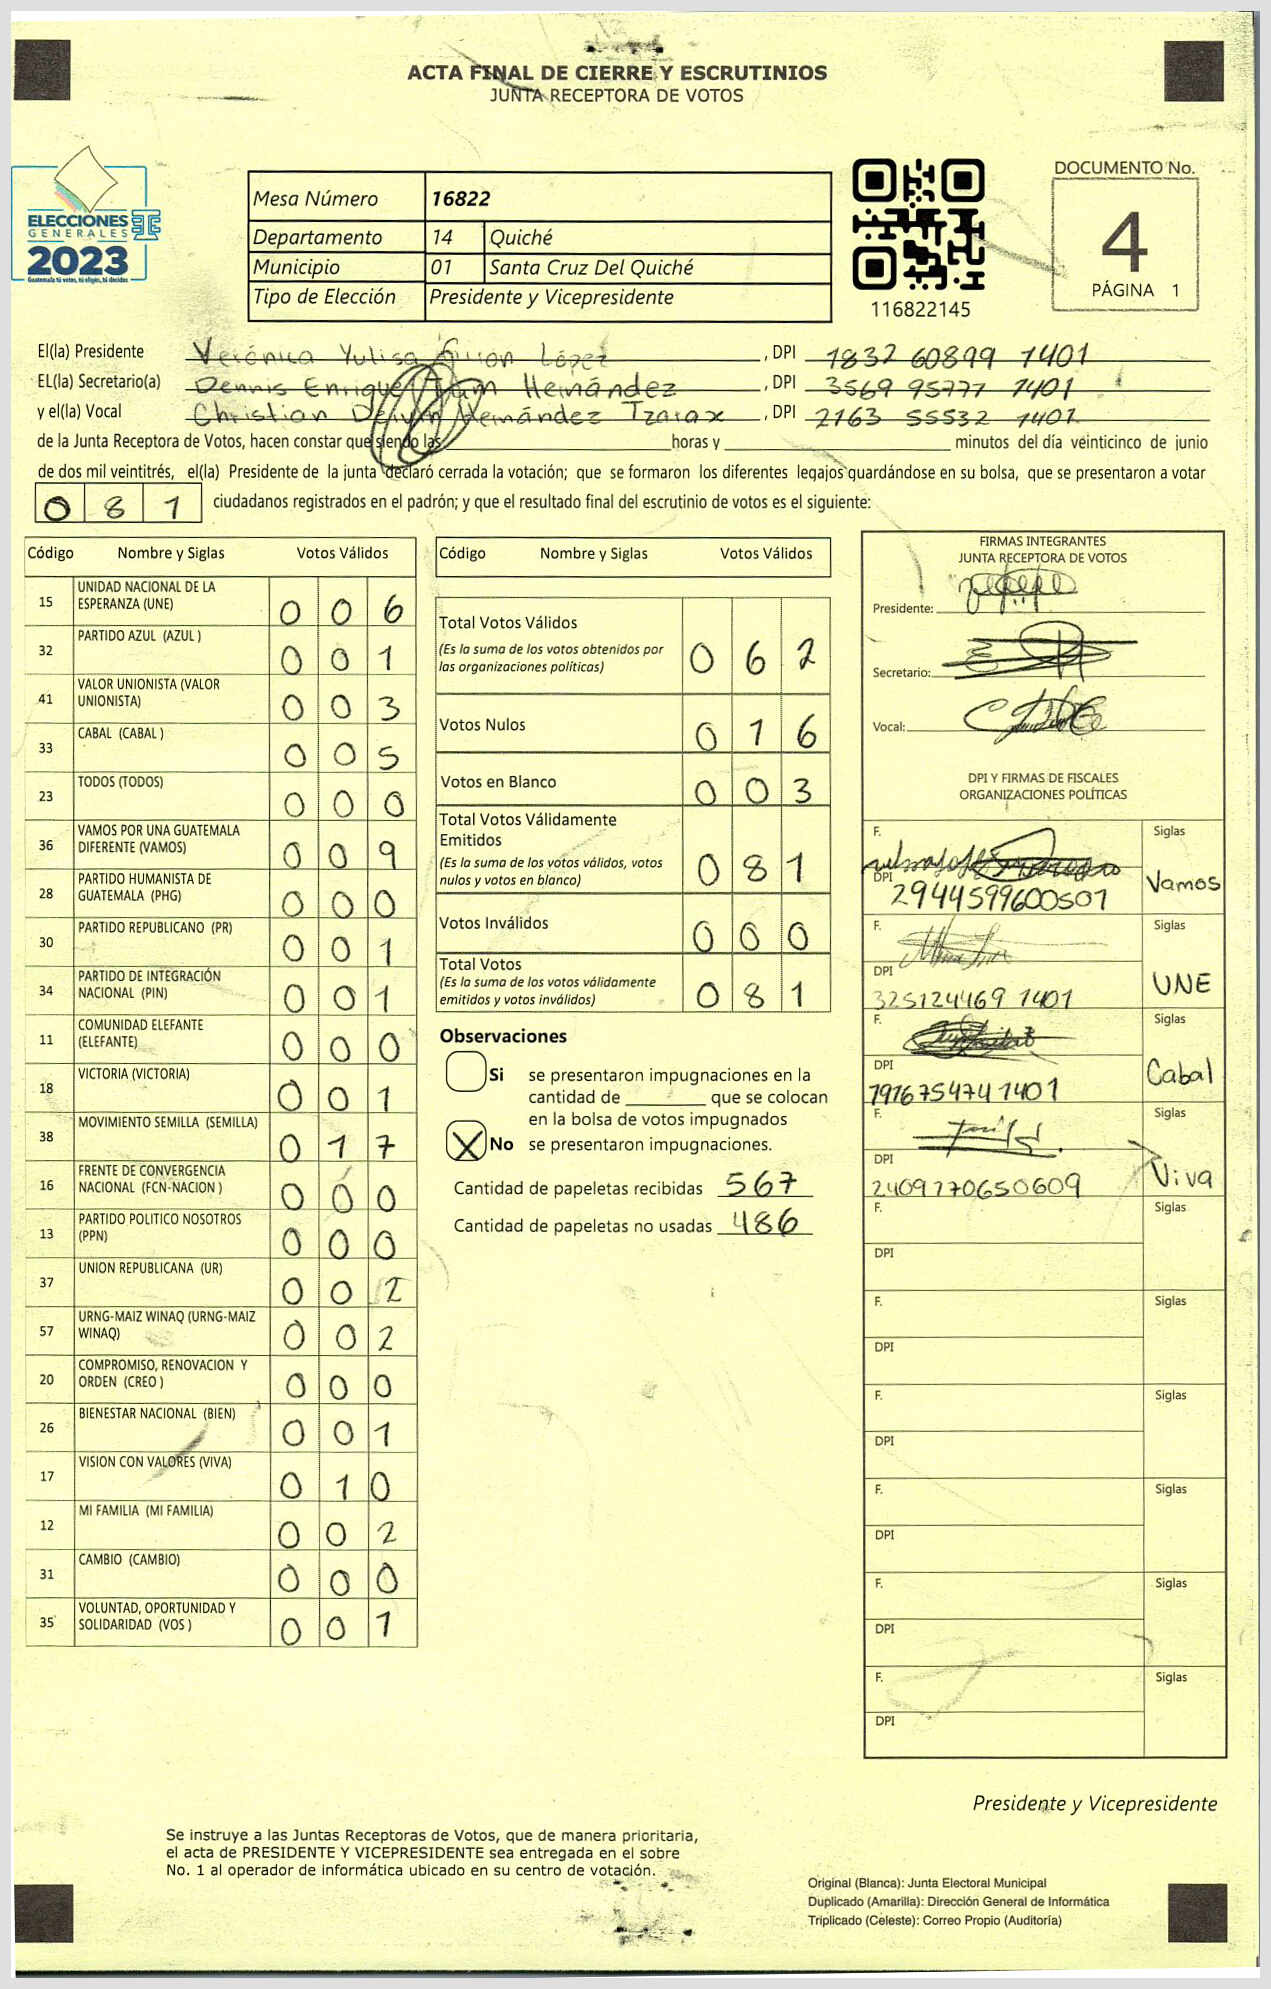 ACTA FINAL DE CIERRE Y ESCRUTINIOS
JUNTA RECEPTORA DE VOTOS
ELECCIONES
GENERALES
2023
Guatemala tú votas, tú eliges, tú decides
Mesa Número 16822
Departamento 14 Quiché
Municipio 01 Santa Cruz Del Quiché
Tipo de Elección Presidente y Vicepresidente
116822145
DOCUMENTO No.
4
PÁGINA 1
El(la) Presidente Verónica Yulisa Girón López, DPI 1832 60899 1401
EL(la) Secretario(a) Dennis Enrique Hernández, DPI 3569 95777 1401
y el(la) Vocal Christian Hernández Tzarax, DPI 2163 55532 1401
de la Junta Receptora de Votos, hacen constar que siendo las horas y minutos del día veinticinco de junio
de dos mil veintitrés, el(la) Presidente de la junta declaró cerrada la votación; que se formaron los diferentes legajos guardándose en su bolsa, que se presentaron a votar
081 ciudadanos registrados en el padrón; y que el resultado final del escrutinio de votos es el siguiente:
Código Nombre y Siglas Votos Válidos
15 UNIDAD NACIONAL DE LA ESPERANZA (UNE) 006
32 PARTIDO AZUL (AZUL ) 001
41 VALOR UNIONISTA (VALOR UNIONISTA) 003
33 CABAL (CABAL ) 005
23 TODOS (TODOS) 000
36 VAMOS POR UNA GUATEMALA DIFERENTE (VAMOS) 009
28 PARTIDO HUMANISTA DE GUATEMALA (PHG) 000
30 PARTIDO REPUBLICANO (PR) 001
34 PARTIDO DE INTEGRACIÓN NACIONAL (PIN) 001
11 COMUNIDAD ELEFANTE (ELEFANTE) 000
18 VICTORIA (VICTORIA) 001
38 MOVIMIENTO SEMILLA (SEMILLA) 017
16 FRENTE DE CONVERGENCIA NACIONAL (FCN-NACION ) 000
13 PARTIDO POLITICO NOSOTROS (PPN) 000
37 UNION REPUBLICANA (UR) 002
57 URNG-MAIZ WINAQ (URNG-MAIZ WINAQ) 002
20 COMPROMISO, RENOVACION Y ORDEN (CREO ) 000
26 BIENESTAR NACIONAL (BIEN) 001
17 VISION CON VALORES (VIVA) 010
12 MI FAMILIA (MI FAMILIA) 002
31 CAMBIO (CAMBIO) 000
35 VOLUNTAD, OPORTUNIDAD Y SOLIDARIDAD (VOS ) 001
Código Nombre y Siglas Votos Válidos
Total Votos Válidos 062
(Es la suma de los votos obtenidos por las organizaciones políticas)
Votos Nulos 016
Votos en Blanco 003
Total Votos Válidamente Emitidos 081
(Es la suma de los votos válidos, votos nulos y votos en blanco)
Votos Inválidos 000
Total Votos 081
(Es la suma de los votos válidamente emitidos y votos inválidos)
Observaciones
Si se presentaron impugnaciones en la
cantidad de que se colocan
en la bolsa de votos impugnados
X No se presentaron impugnaciones.
Cantidad de papeletas recibidas 567
Cantidad de papeletas no usadas 486
FIRMAS INTEGRANTES
JUNTA RECEPTORA DE VOTOS
Presidente:
Secretario:
Vocal:
DPI Y FIRMAS DE FISCALES
ORGANIZACIONES POLÍTICAS
F. Siglas
DPI 2944599600501 Vamos
F. Siglas
DPI 325124469 1401 UNE
F. Siglas
DPI 1916754741401 Cabal
F. Siglas
DPI 2409770650609 Viva
F. Siglas
DPI
F. Siglas
DPI
F. Siglas
DPI
F. Siglas
DPI
F. Siglas
DPI
F. Siglas
DPI
Presidente y Vicepresidente
Se instruye a las Juntas Receptoras de Votos, que de manera prioritaria,
el acta de PRESIDENTE Y VICEPRESIDENTE sea entregada en el sobre
No. 1 al operador de informática ubicado en su centro de votación.
Original (Blanca): Junta Electoral Municipal
Duplicado (Amarilla): Dirección General de Informática
Triplicado (Celeste): Correo Propio (Auditoría)